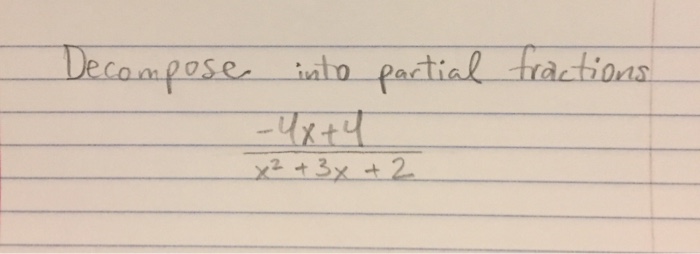 Decompose into partial fractions
-4x+4
x² + 3x + 2